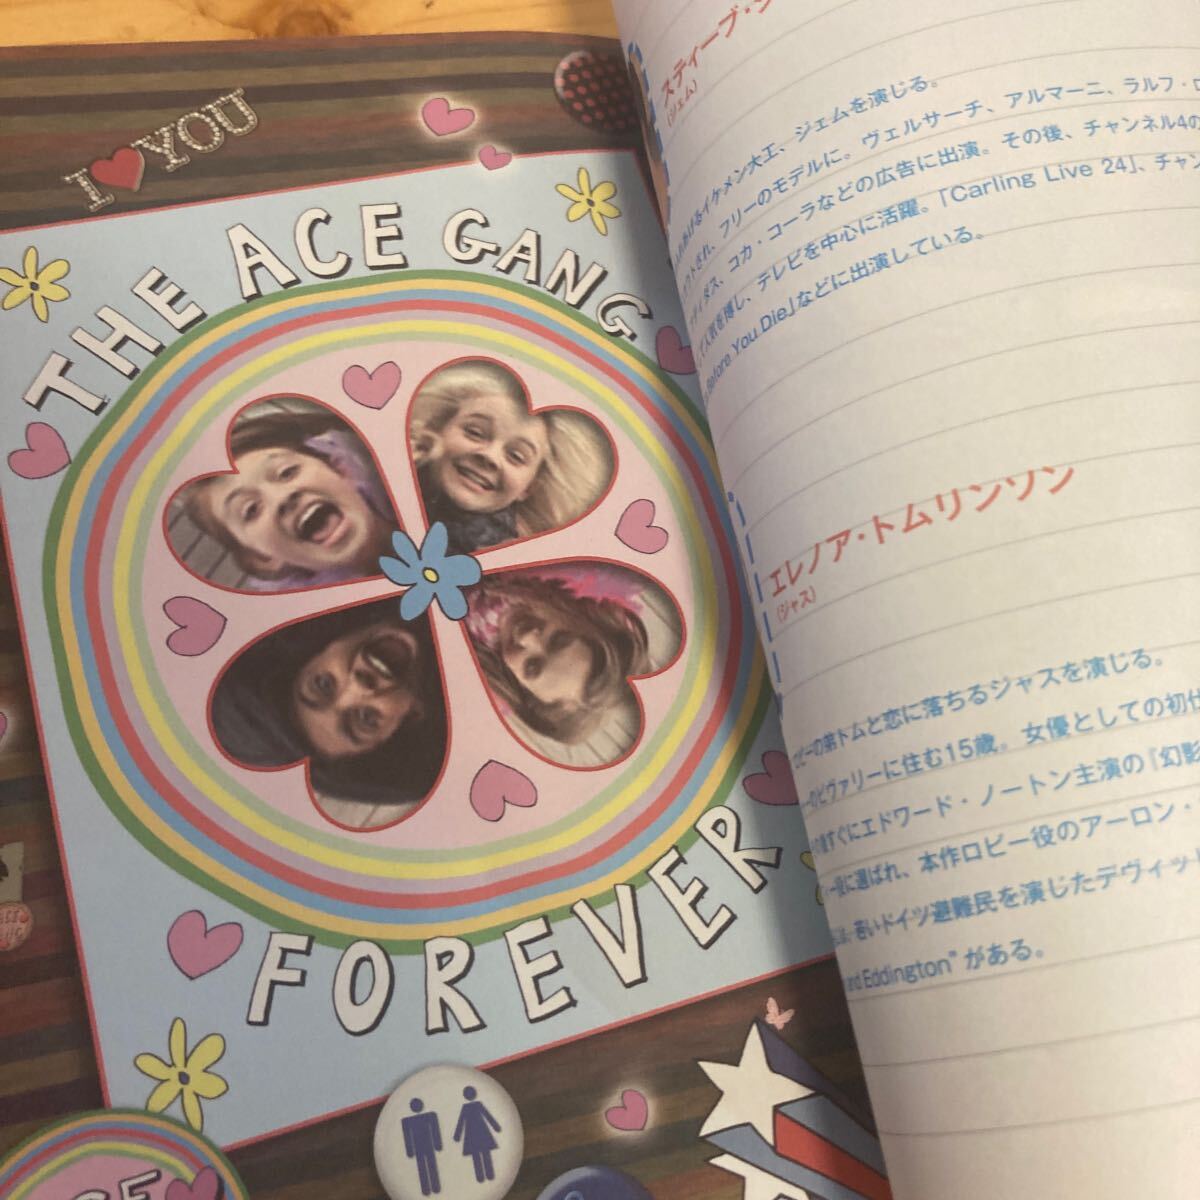 I YOU
THE ACE GANG
FOREVER
スティーブ・
(ジェム)
あげるイケメン大王、ジェムを演じる。
トされ、フリーのモデルに。ヴェルサーチ、アルマーニ、ラルフ・
ディダス、コカ・コーラなどの広告に出演。その後、チャンネル4の
て人気を博し、テレビを中心に活躍。「Carling Live 24」、チャン
Before You Die」などに出演している。
エレノア・トムリンソン
(ジャス)
ビーの弟トムと恋に落ちるジャスを演じる。
ーのビヴァリーに住む15歳。女優としての初仕
の後すぐにエドワード・ノートン主演の『幻影
役に選ばれ、本作ロビー役のアーロン・
若いドイツ避難民を演じたデヴィッ
and Eddington”がある。